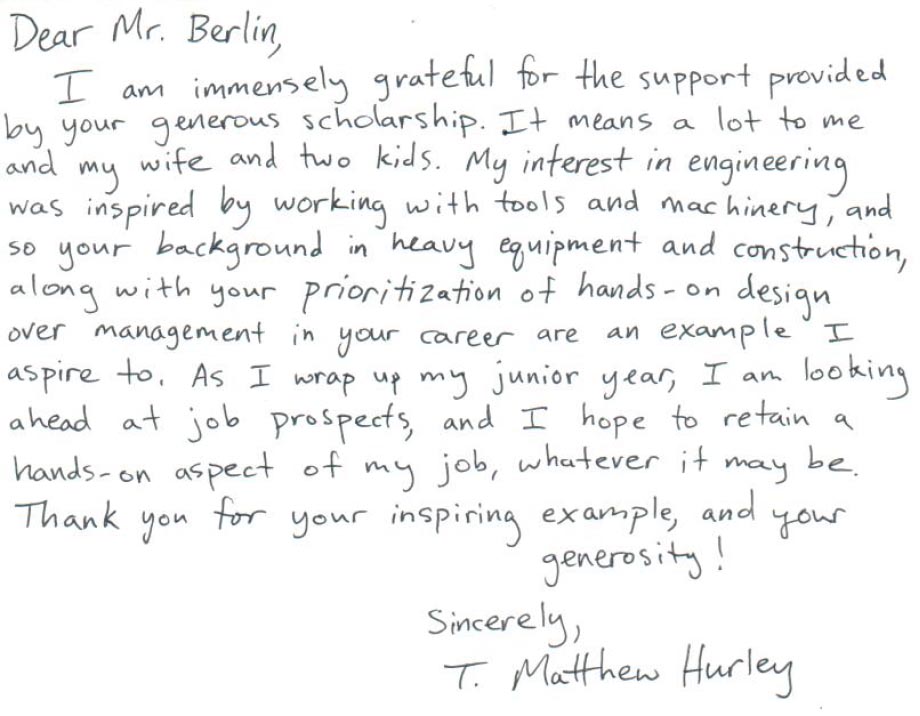 Dear Mr. Berlin,
I am immensely grateful for the support provided
by your generous scholarship. It means a lot to me
and my wife and two kids. My interest in engineering
was inspired by working with tools and machinery, and
so your background in heavy equipment and construction,
along with your prioritization of hands-on design
over management in your career are an example I
aspire to. As I wrap up my junior year, I am looking
ahead at job prospects, and I hope to retain a
hands-on aspect of my job, whatever it may be.
Thank you for your inspiring example, and your
generosity!
Sincerely,
T. Matthew Hurley